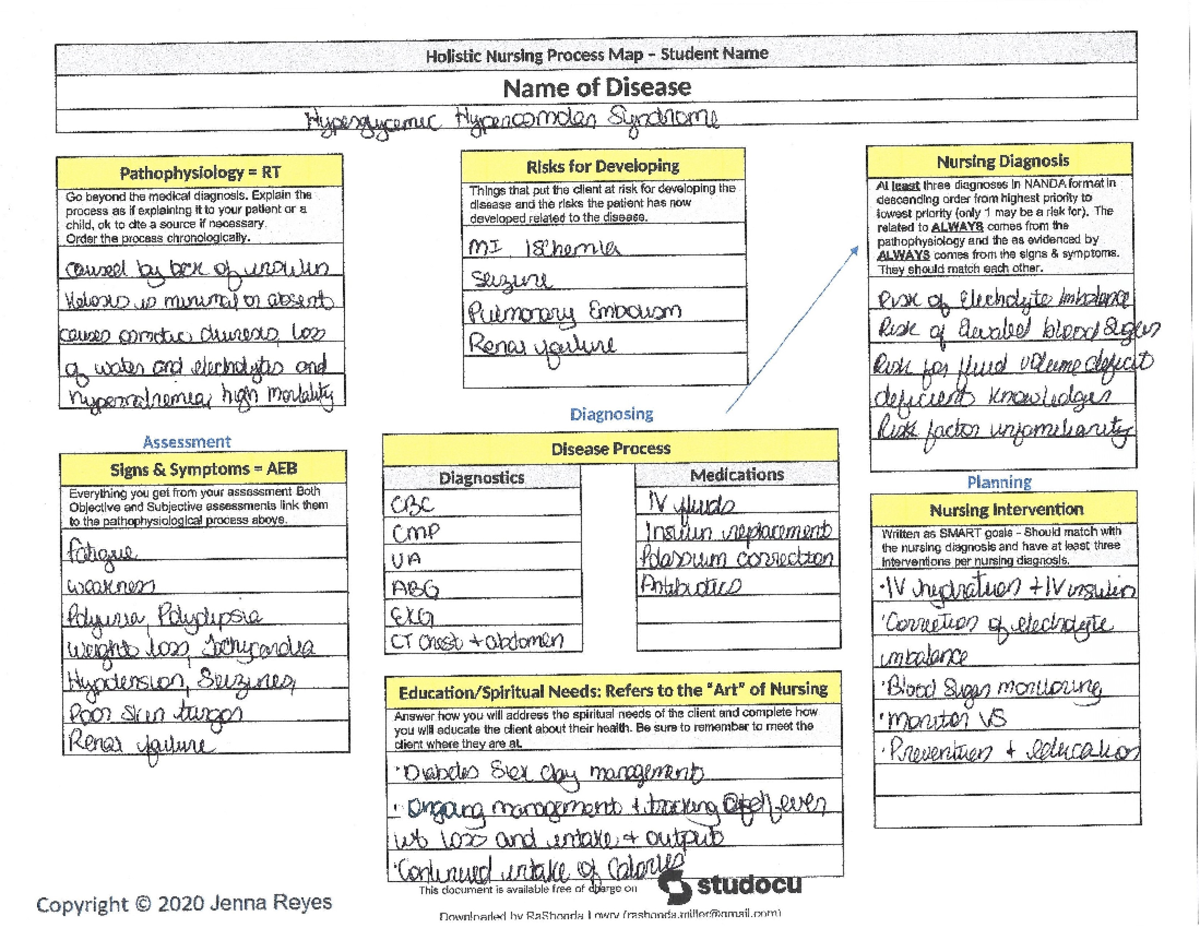 Holistic Nursing Process Map – Student Name
Name of Disease
Hyperglycemic Hyperosmolar Syndrome
Pathophysiology = RT
Go beyond the medical diagnosis. Explain the
process as if explaining it to your patient or a
child, ok to cite a source if necessary.
Order the process chronologically.
caused by lack of insulin
Ketosis is minimal or absent
causes osmotic diuresis, loss
of water and electrolytes and
hypernatremia, high mortality
Assessment
Signs & Symptoms = AEB
Everything you get from your assessment Both
Objective and Subjective assessments link them
to the pathophysiological process above.
fatigue
weakness
Polyuria, Polydipsia
Weight loss, Tachycardia
Hypotension, Seizures,
Poor Skin turgor
Renal failure
Risks for Developing
Things that put the client at risk for developing the
disease and the risks the patient has now
developed related to the disease.
MI, Ischemia
Seizure
Pulmonary Embolism
Renal failure
Diagnosing
Disease Process
Diagnostics
CBC
CMP
UA
ABG
EKG
CT chest + abdomen
Medications
IV fluids
Insulin replacement
Potassium correction
Antibiotics
Education/Spiritual Needs: Refers to the "Art" of Nursing
Answer how you will address the spiritual needs of the client and complete how
you will educate the client about their health. Be sure to remember to meet the
client where they are at.
·Diabetes Sick day management
· Ongoing management + tracking of fever
wt loss and intake + output
·Continued intake of Calories
Nursing Diagnosis
At least three diagnoses in NANDA format in
descending order from highest priority to
lowest priority (only 1 may be a risk for). The
related to ALWAYS comes from the
pathophysiology and the as evidenced by
ALWAYS comes from the signs & symptoms.
They should match each other.
Risk of Electrolyte Imbalance
Risk of Elevated blood Sugar
Risk for fluid volume deficit
deficient Knowledge
Risk factor unfamiliarity
Planning
Nursing Intervention
Written as SMART goals – Should match with
the nursing diagnosis and have at least three
interventions per nursing diagnosis.
·IV hydration + IV insulin
·Correction of electrolyte
imbalance
·Blood Sugar monitoring
·monitor VS
·Prevention + education
This document is available free of charge on
studocu
Copyright © 2020 Jenna Reyes
Downloaded by RaShonda Lowry (rashonda.miller@gmail.com)